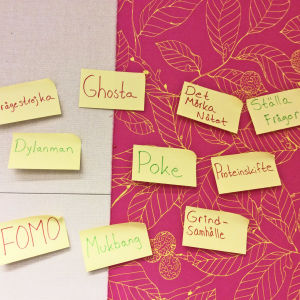 rågestrejka
Ghosta
Det
Mörka
Nätet
Ställa
Frågor
Dylanman
Poke
Proteinskifte
FOMO
Mukbang
Grind-
Samhälle